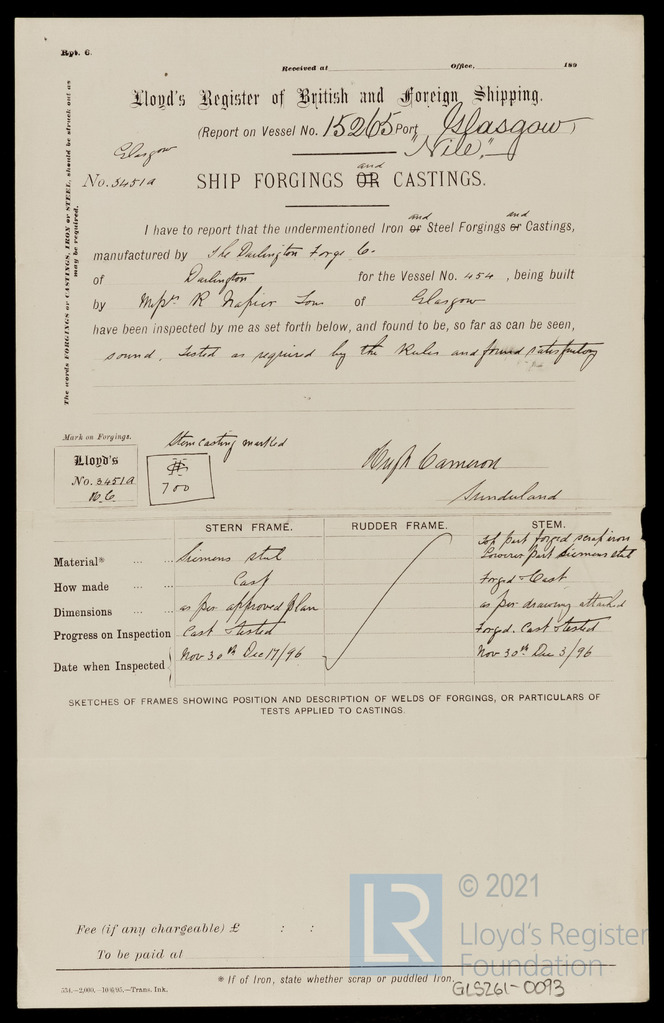 Rpt. 6.
Received at Office, 189
Lloyd's Register of British and Foreign Shipping.
(Report on Vessel No. 15265 Port Glasgow)
"Nile"
Glasgow
No. 3451a
SHIP FORGINGS OR and CASTINGS.
The words FORGINGS or CASTINGS, IRON or STEEL, should be struck out as may be required.
I have to report that the undermentioned Iron or and Steel Forgings or and Castings,
manufactured by The Darlington Forge Co.
of Darlington for the Vessel No. 454, being built
by Messrs R Napier Sons of Glasgow
have been inspected by me as set forth below, and found to be, so far as can be seen,
sound. Tested as required by the Rules and found satisfactory
Mark on Forgings.
Lloyd's
No. 3451a
H.C.
Stem casting marked
700
Hugh Cameron
Sunderland
STERN FRAME. RUDDER FRAME. STEM.
Material* Siemens steel Top part forged scrap iron
Lower Part Siemens steel
How made Cast Forged & Cast
Dimensions as per approved plan as per drawing attached
Progress on Inspection Cast & tested Forged. Cast & tested
Date when Inspected Nov 30th Dec 17/96 Nov 30th Dec 3/96
SKETCHES OF FRAMES SHOWING POSITION AND DESCRIPTION OF WELDS OF FORGINGS, OR PARTICULARS OF
TESTS APPLIED TO CASTINGS.
Fee (if any chargeable) £ : :
To be paid at
* If of Iron, state whether scrap or puddled Iron.
554.—2,000.—10/6/95.—Trans. Ink.
GLS261-0093
LR
© 2021
Lloyd's Register
Foundation